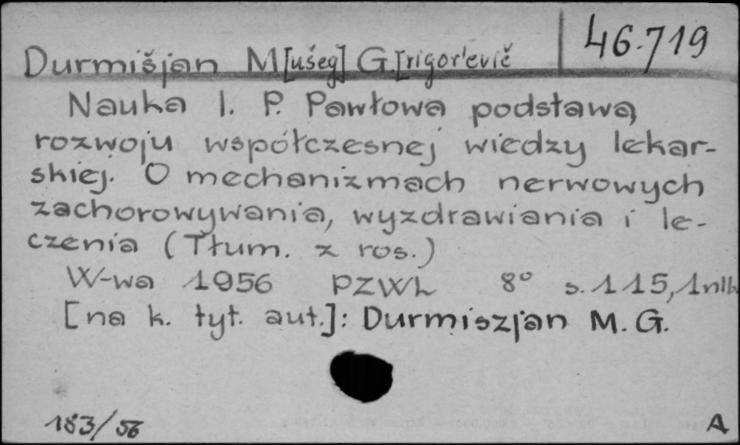 46.719
Durmišjan M[ušeg] G.[rigor'evič
Nauka I. P. Pawłowa podstawą
rozwoju współczesnej wiedzy lekar-
skiej. O mechanizmach nerwowych
zachorowywania, wyzdrawiania i le-
czenia (Tłum. z ros.)
W-wa 1956 PZWL 8° s. 115, 1nlb
[na k. tyt. aut.]: Durmiszjan M. G.
183/56 A